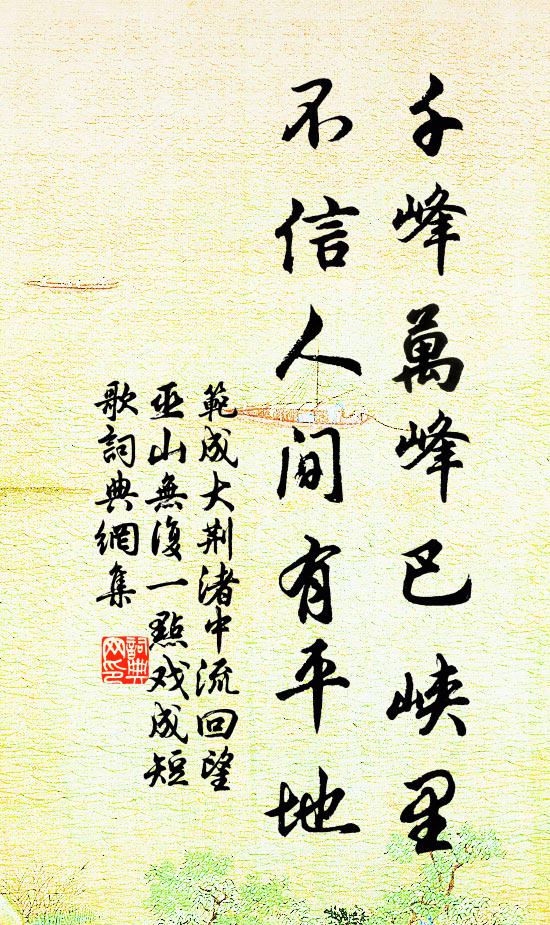 千峰萬峰巴峽里
不信人間有平地
範成大荆渚中流回望
巫山無復一點戏成短
歌詞典網集
詞典
网印